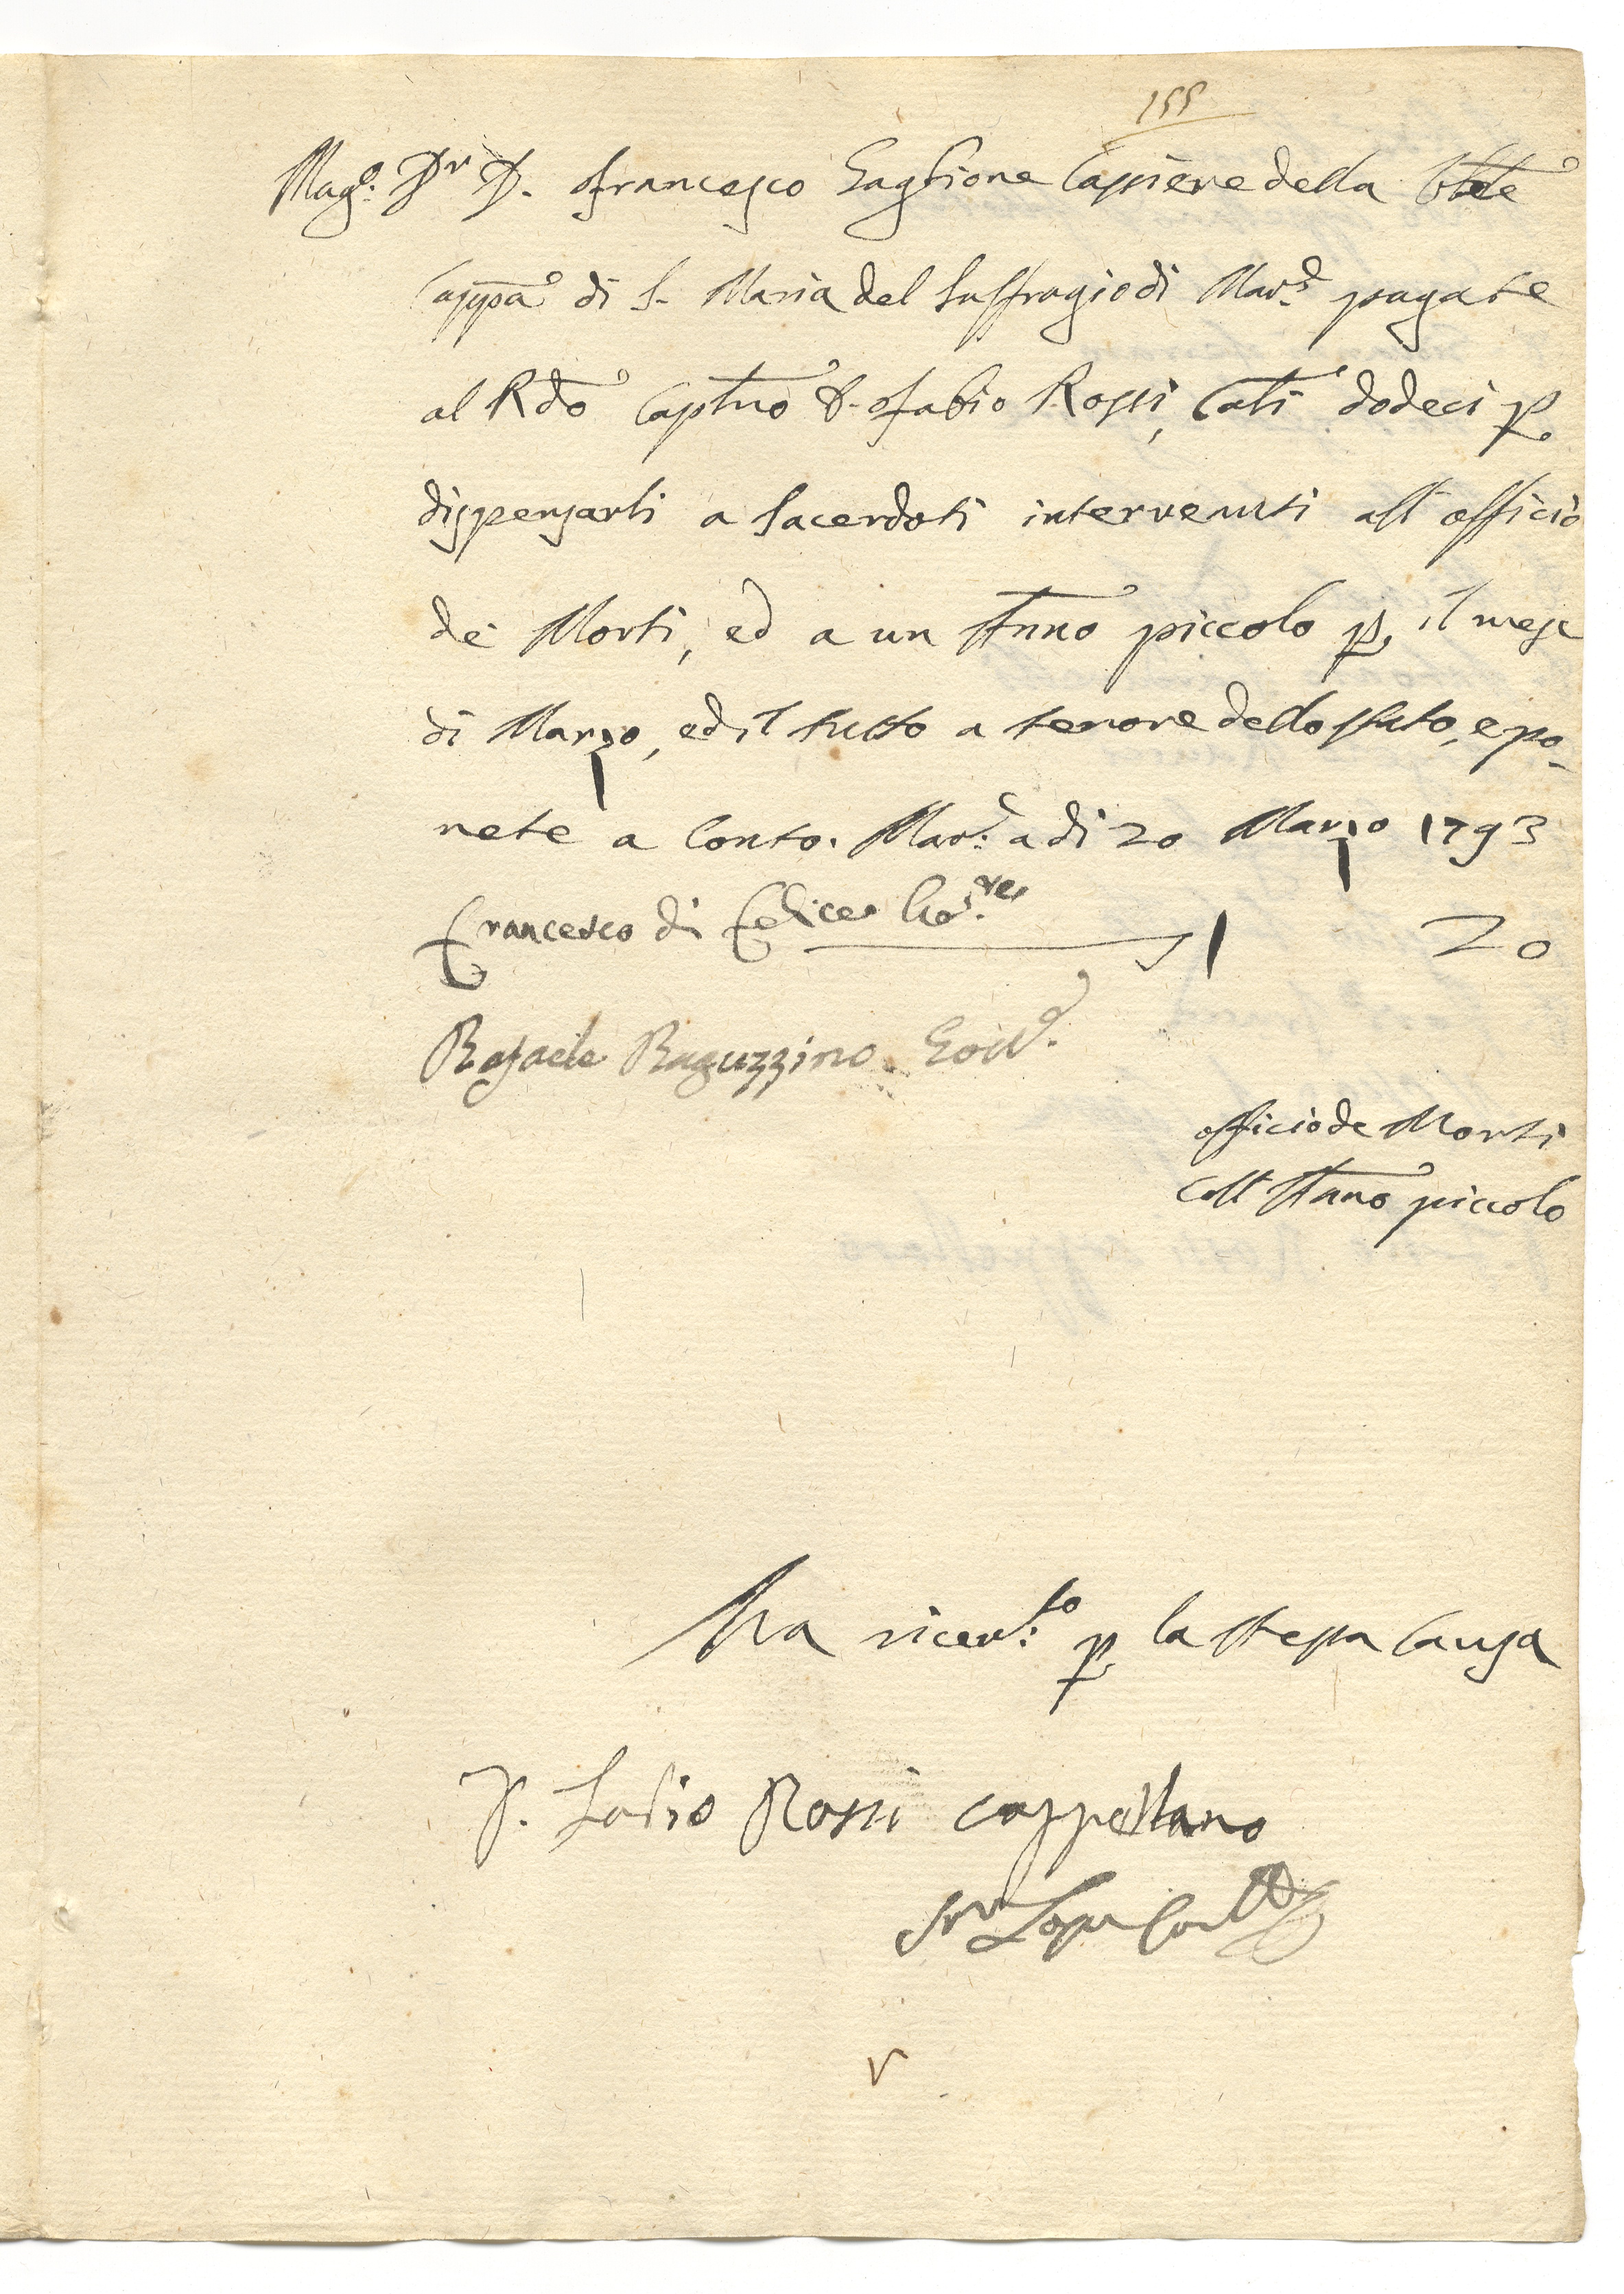 155
Mag.º Dr D. Francesco Gaglione Cassiere della
Cappª di S. Maria del Suffragio di Mar.d pagate
al Rdo D. Fabio Rossi, Cati dodeci p.
dispensarli a Sacerdoti intervenuti all officio
de Morti, ed a un Anno piccolo p. il mese
di Marzo, ed il tutto a tenore dello stato, e po-
nete a Conto. Mar.e a di 20 Marzo 1793
Francesco di Felice Gov.re 1 20
Rafaele Raguzzino
officio de Morti
Coll Anno piccolo
Ha ricev.to p. la stessa Causa
D. Fabio Rossi cappellano